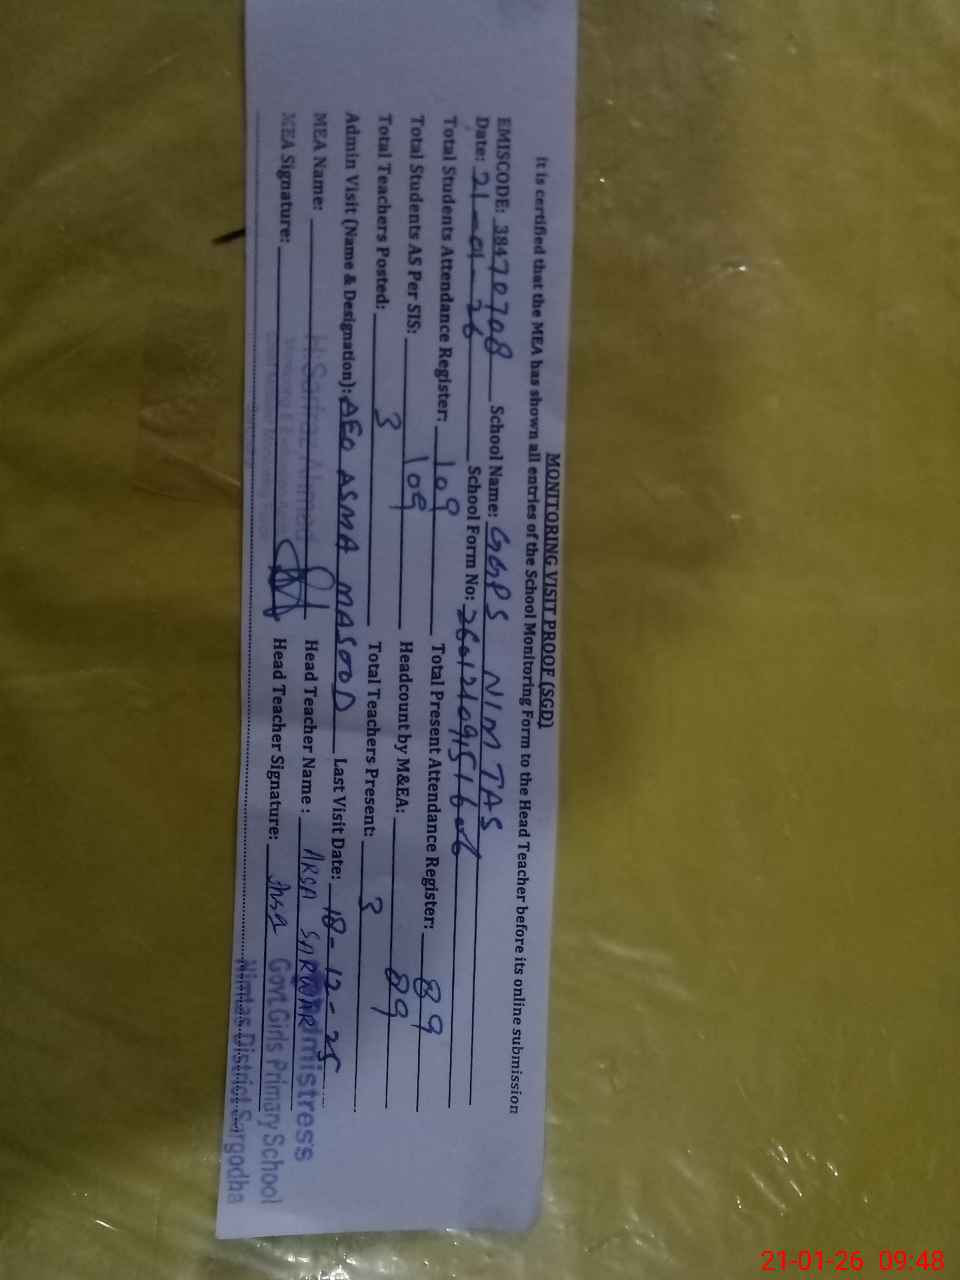 MONITORING VISIT PROOF (SGD)
It is certified that the MEA has shown all entries of the School Monitoring Form to the Head Teacher before its online submission
EMISCODE: 38470708 School Name: GGPS NIMTAS
Date: 21-01-26 School Form No:
Total Students Attendance Register: 109 Total Present Attendance Register: 89
Total Students AS Per SIS: 109 Headcount by M&EA: 89
Total Teachers Posted: 3 Total Teachers Present: 3
Admin Visit (Name & Designation): AEO ASMA MASOOD Last Visit Date: 18-12-25
MEA Name: Sarfraz Ahmed Head Teacher Name : ARSA SARWAR
MEA Signature: Head Teacher Signature: Arsa
Govt. Girls Primary School
Nimtas District Sargodha
21-01-26 09:48